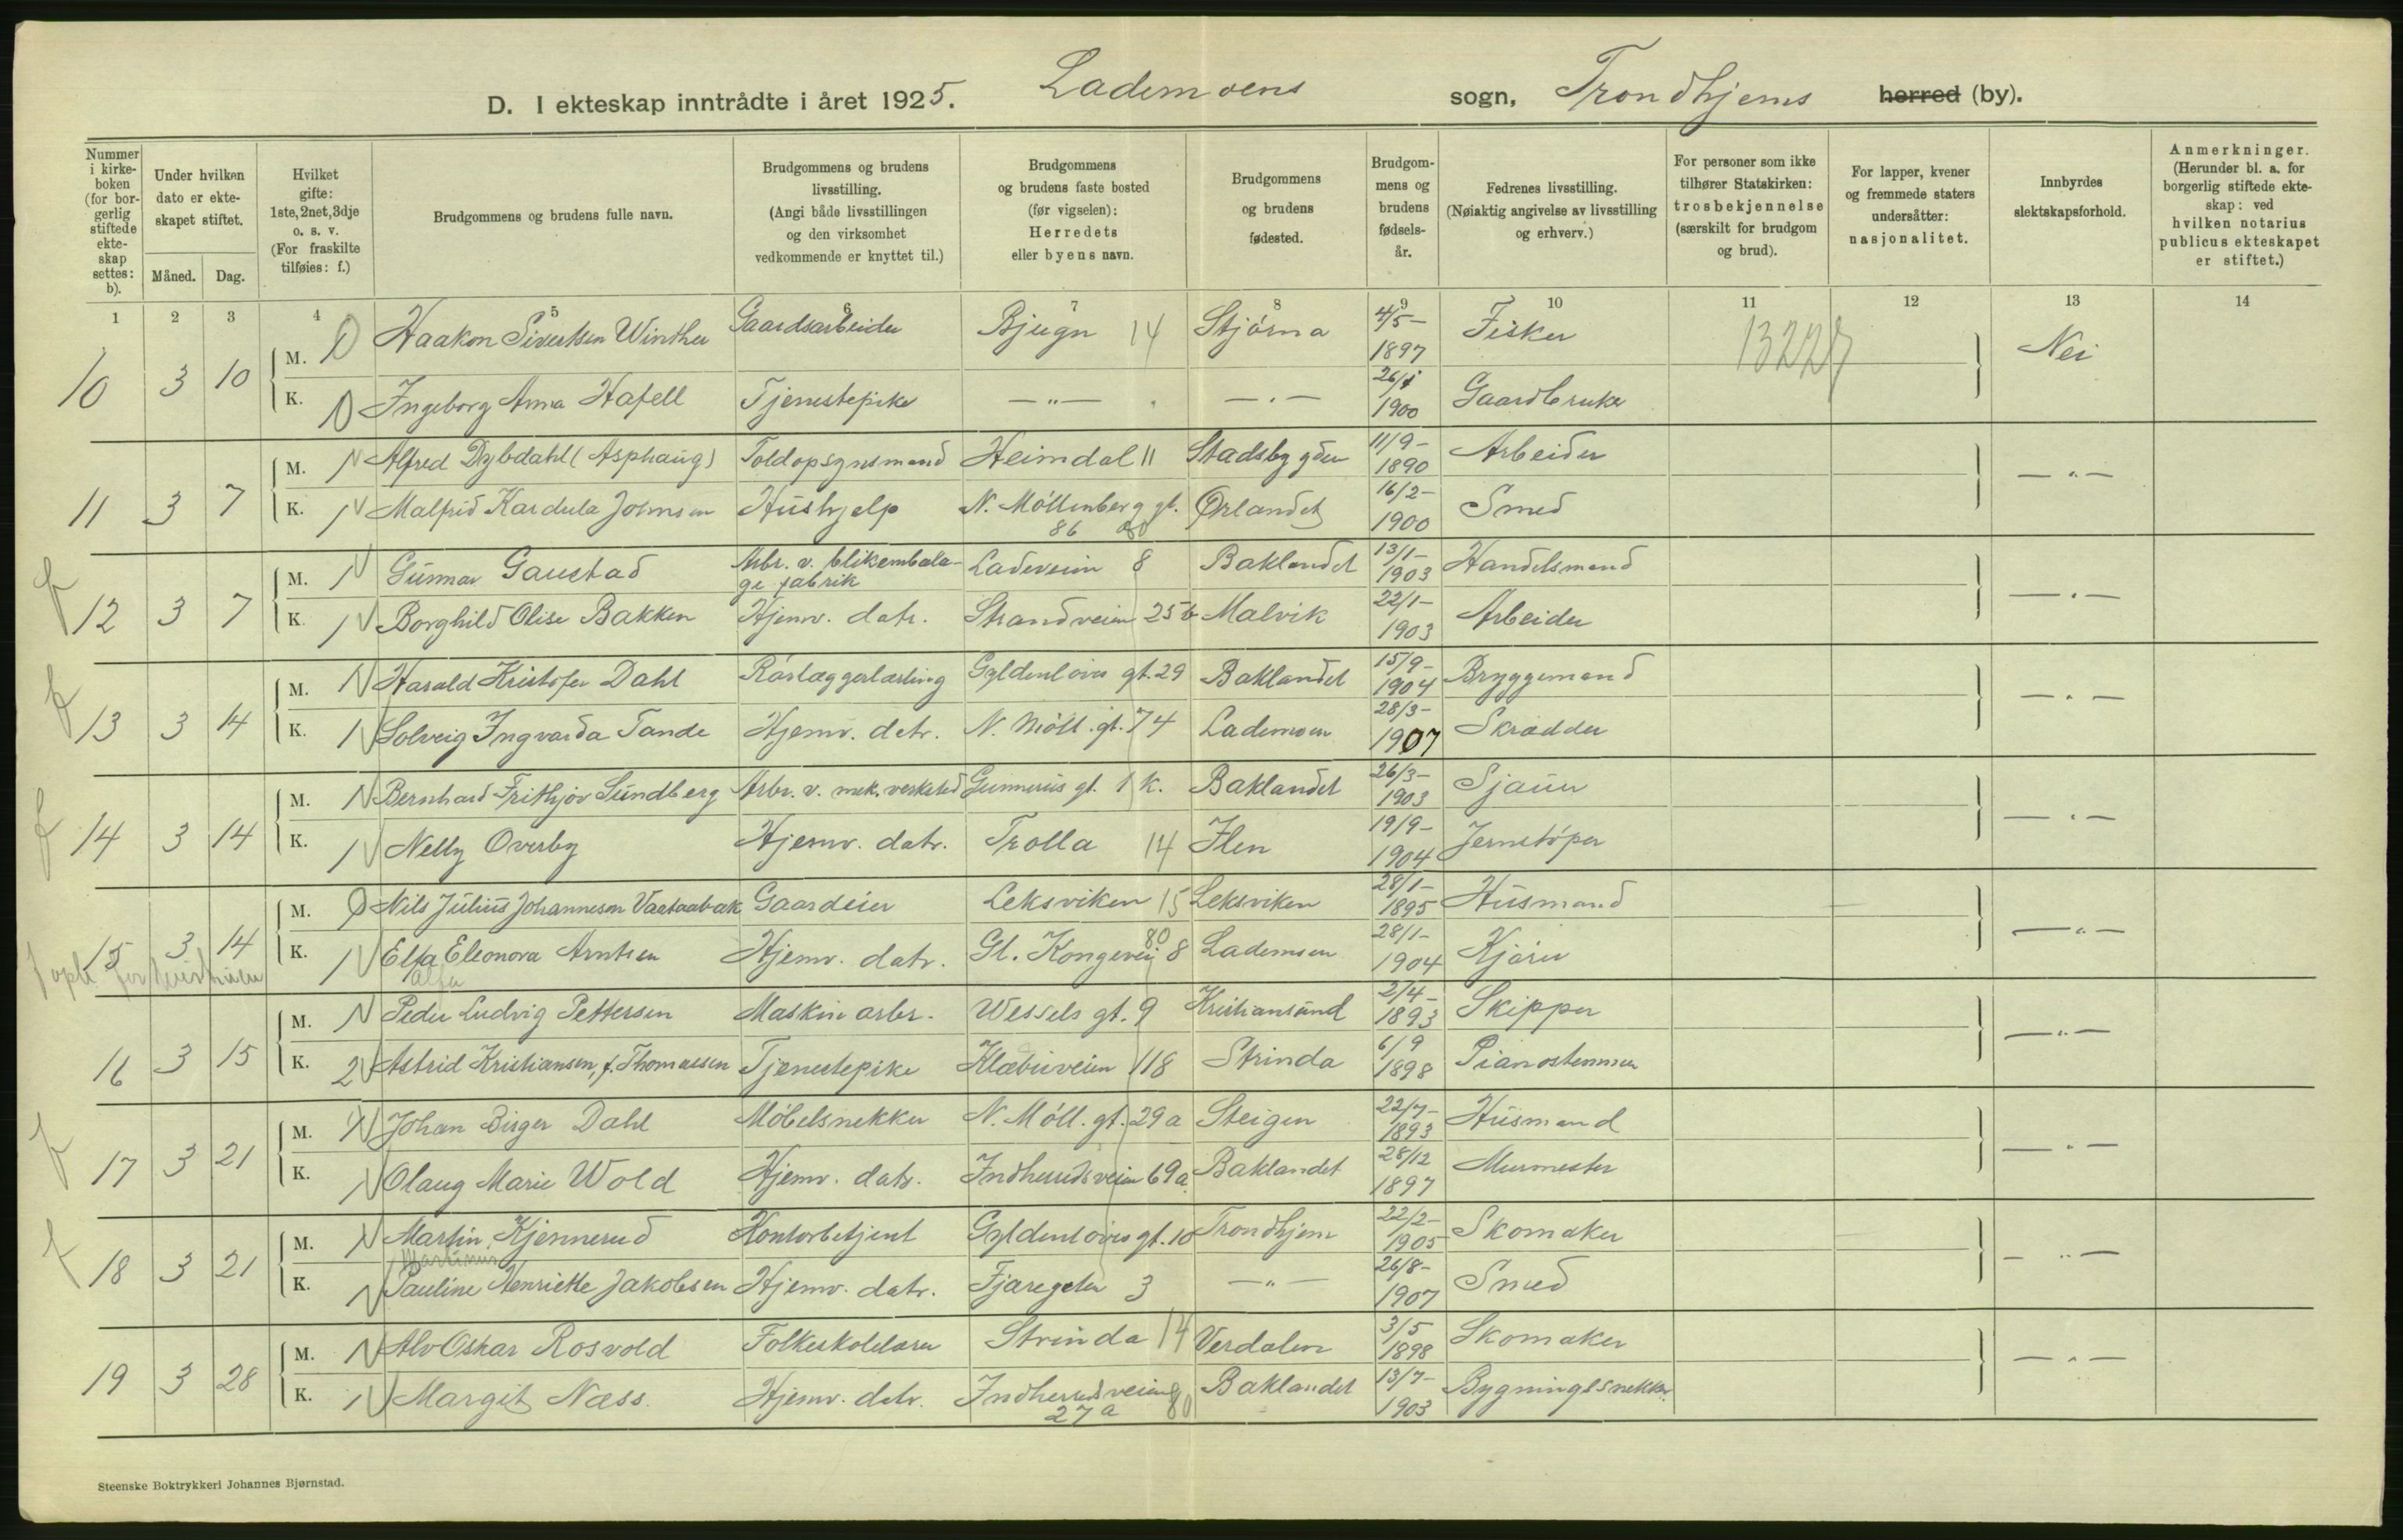 D. I ekteskap inntrådte i året 1925. Lademoens sogn, Trondhjems herred (by).
Nummer i kirkeboken (for borgerlig stiftede ekteskap settes: b).
Under hvilken dato er ekteskapet stiftet.
Måned. Dag.
Hvilket gifte: 1ste, 2net, 3dje o. s. v. (For fraskilte tilføies: f.)
Brudgommens og brudens fulle navn.
Brudgommens og brudens livsstilling. (Angi både livsstillingen og den virksomhet vedkommende er knyttet til.)
Brudgommens og brudens faste bosted (før vigselen): Herredets eller byens navn.
Brudgommens og brudens fødested.
Brudgommens og brudens fødselsår.
Fedrenes livsstilling. (Nøiaktig angivelse av livsstilling og erhverv.)
For personer som ikke tilhører Statskirken: trosbekjennelse (særskilt for brudgom og brud).
For lapper, kvener og fremmede staters undersåtter: nasjonalitet.
Innbyrdes slektskapsforhold.
Anmerkninger. (Herunder bl. a. for borgerlig stiftede ekteskap: ved hvilken notarius publicus ekteskapet er stiftet.)
1 2 3 4 5 6 7 8 9 10 11 12 13 14
10 3 10 M. 1 Haakon Sivertsen Winther Gaardsarbeider Bjugn 14 Stjørna 4/5 - 1897 Fisker 13227 Nei
K. 1 Ingeborg Anna Hafell Tjenestepike — " — — " — 26/1 1900 Gaardbruker
11 3 7 M. 1 Alfred Dybdahl (Asphaug) Toldopsynsmand Heimdal 11 Stadsbygden 11/9 - 1890 Arbeider — " —
K. 1 Malfrid Kardula Johnsen Hushjelp N. Möllenberg gt. 86 80 Ørlandet 16/2 - 1900 Smed
12 3 7 M. 1 Gunnar Gaustad Arbr. v. blikembalage fabrik Ladeveien 8 Baklandet 13/1 - 1903 Handelsmand — " —
K. 1 Borghild Olise Bakken Hjemv. datr. Strandveien 25b Malvik 22/1 - 1903 Arbeider
13 3 14 M. 1 Harald Kristofer Dahl Rørlæggerlærling Gyldenløves gt. 29 Baklandet 15/9 - 1904 Bryggemand — " —
K. 1 Solveig Ingvarda Tande Hjemv. datr. N. Möll. gt. 74 Lademoen 28/3 - 1907 Skrædder
14 3 14 M. 1 Bernhard Frithjov Sundberg Arbr. v. mek. verksted Gunnerus gt. 1 k. Baklandet 26/3 - 1903 Sjauer — " —
K. 1 Nelly Overby Hjemv. datr. Trolla 14 Ilen 19/9 - 1904 Jernstøper
15 3 14 M. Nils Julius Johannesen Vaataabak Gaardeier Leksviken 15 Leksviken 28/1 - 1895 Husmand — " —
K. 1 Elfa Eleonora Arntsen Hjemv. datr. Gl. Kongevei 8 80 Lademoen 28/1 - 1904 Kjører
Alfa
16 3 15 M. 1 Peder Ludvig Pettersen Maskinarbr. Wessels gt. 9 Kristiansund 2/4 - 1893 Skipper — " —
K. 2 Astrid Kristiansen, f. Thomassen Tjenestepike Klæbuveien 118 Strinda 6/9 1898 Pianostemmer
17 3 21 M. 1 Johan Birger Dahl Möbelsnekker N. Möll. gt. 29a Steigen 22/7 - 1893 Husmand — " —
K. 1 Olaug Marie Wold Hjemv. datr. Indherredsveien 69a Baklandet 28/12 1897 Murmester
18 3 21 M. 1 Martin Kjennerud Kontorbetjent Gyldenløves gt. 10 Trondhjem 22/2 - 1905 Skomaker — " —
Martinus
K. 1 Pauline Henriette Jakobsen Hjemv. datr. Fjæregaten 3 — " — 26/8 - 1907 Smed
19 3 28 M. 1 Alv Oskar Rosvold Folkeskolelærer Strinda 14 Verdalen 3/5 1898 Skomaker — " —
K. 1 Margit Næss. Hjemv. datr. Indherredsveien 27a 80 Baklandet 13/7 - 1903 Bygningssnekker.
Steenske Boktrykkeri Johannes Bjørnstad.